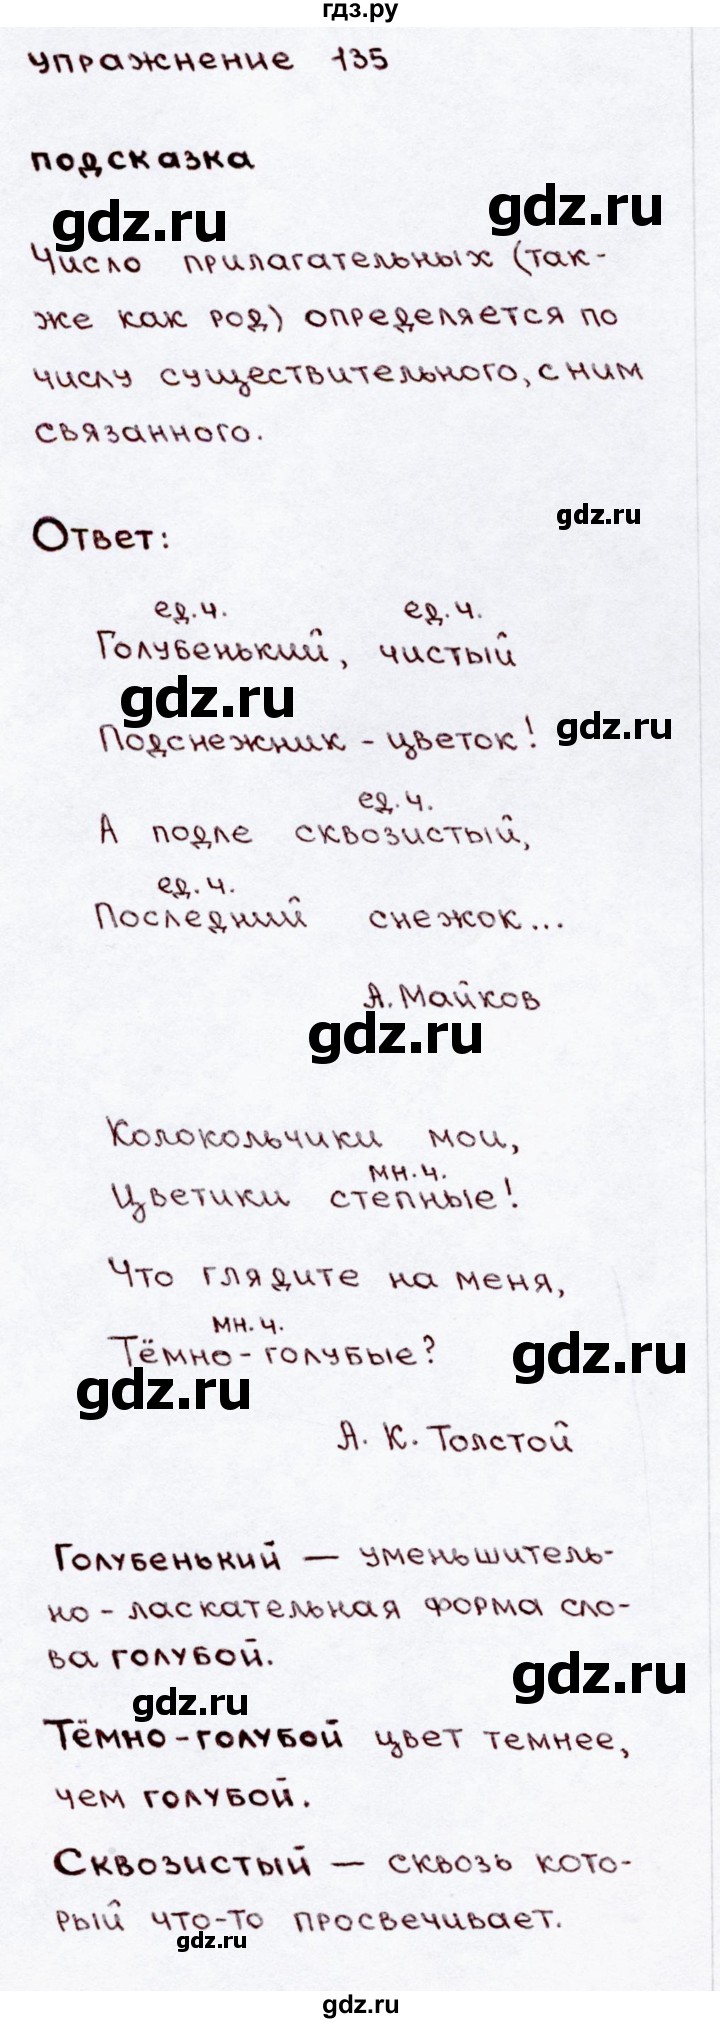 гдз.ру
упражнение 135
подсказка
gdz.ru
gdz.ru
Число прилагательных (так-
же как род) определяется по
числу существительного, с ним
связанного.
gdz.ru
Ответ:
ед.ч. ед.ч.
Голубенький, чистый
gdz.ru
gdz.ru
Подснежник - цветок!
ед.ч.
А подле сквозистый,
ед.ч.
Последний снежок...
А. Майков
gdz.ru
Колокольчики мои,
мн.ч.
Цветики степные!
Что глядите на меня,
мн.ч.
Тёмно-голубые?
gdz.ru
gdz.ru
А. К. Толстой
Голубенький — уменьшитель-
но-ласкательная форма сло-
ва голубой.
gdz.ru
gdz.ru
Тёмно-голубой цвет темнее,
чем голубой.
Сквозистый — сквозь кото-
рый что-то просвечивает.
gdz.ru
gdz.ru